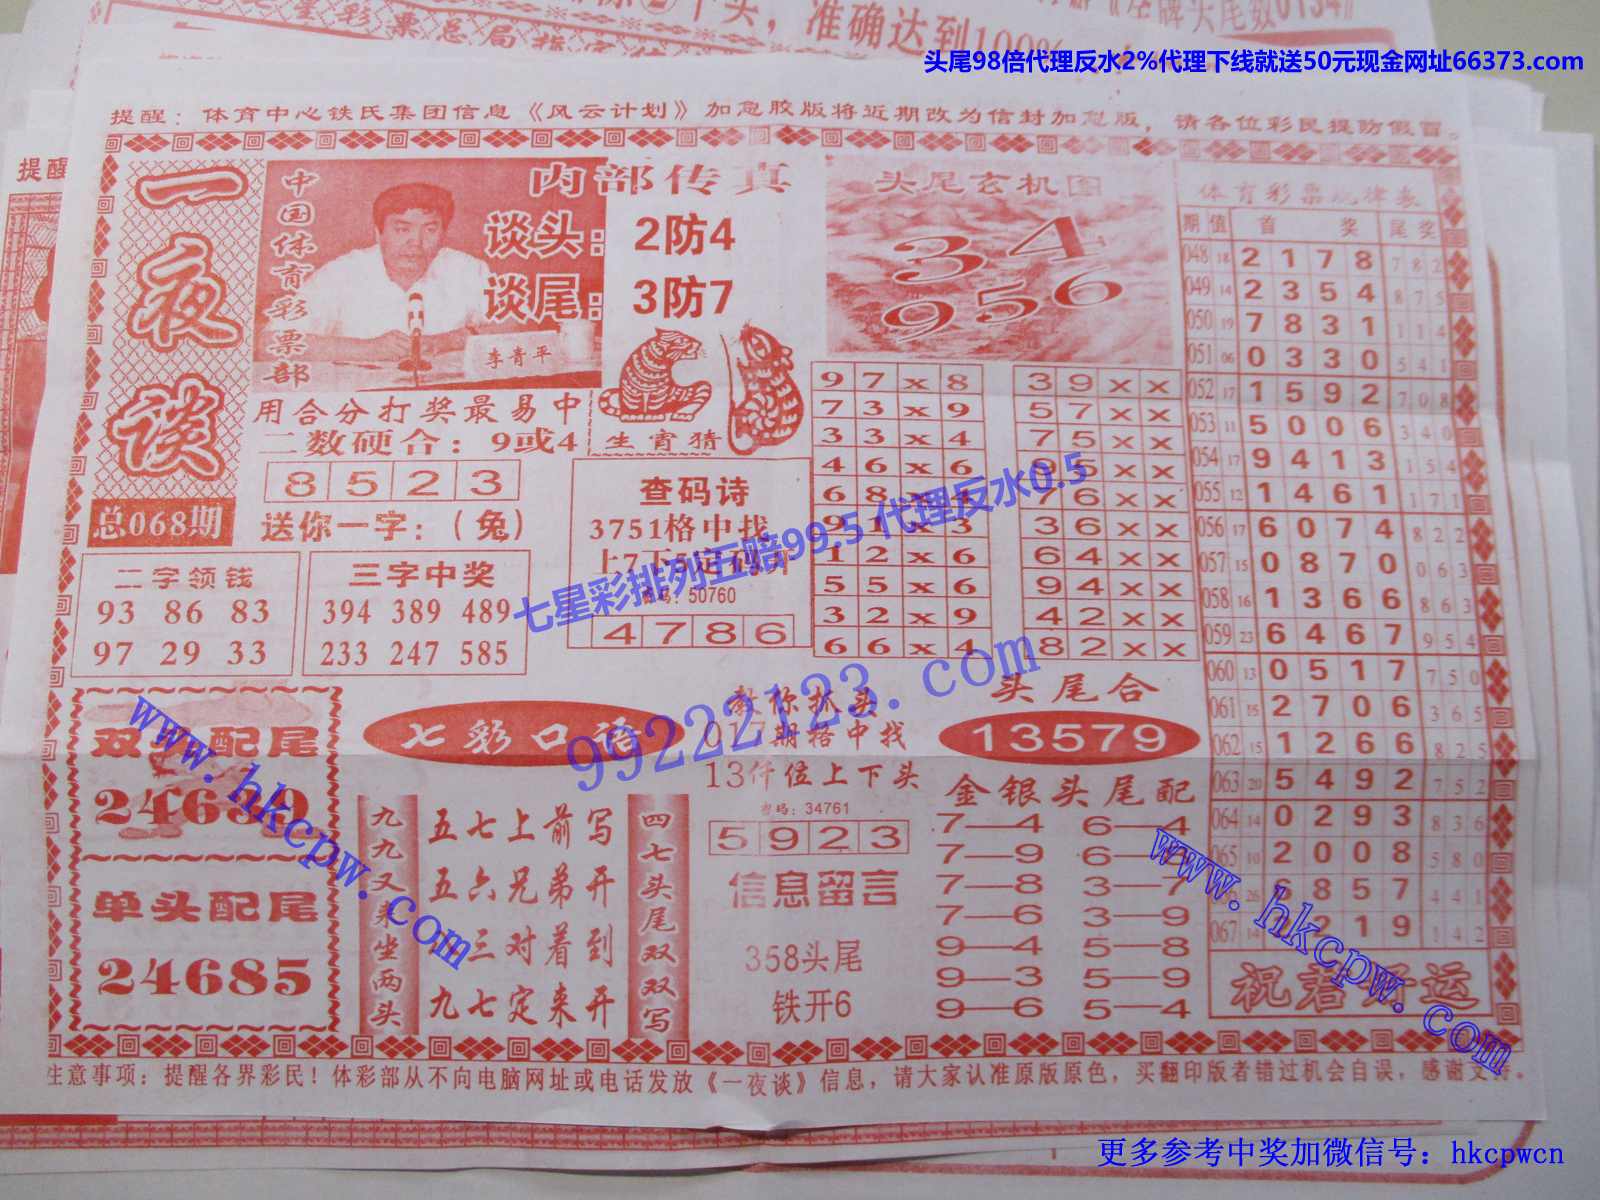 头尾98倍代理反水2%代理下线就送50元现金网址66373.com
提醒：体育中心铁氏集团信息《风云计划》加急胶版将近期改为信封加急版，请各位彩民提防假冒。
提醒
一夜谈
总068期
中国体育彩票部
李青平
内部传真
谈头：2防4
谈尾：3防7
用合分打奖最易中
二数硬合：9或4
8 5 2 3
送你一字：（兔）
生宵猜
头尾玄机图
3 4
9 5 6
二字领钱
93 86 83
97 29 33
三字中奖
394 389 489
233 247 585
查码诗
3751格中找
50760
4 7 8 6
9 7 x 8
7 3 x 9
3 3 x 4
4 6 x 6
6 8 x 4
9 1 x 3
1 2 x 6
5 5 x 6
3 2 x 9
6 6 x 4
3 9 x x
5 7 x x
7 5 x x
7 6 x x
3 6 x x
6 4 x x
9 4 x x
4 2 x x
8 2 x x
体育彩票规律表
期 值 首 奖 尾 奖
048 18 2 1 7 8 7 8 2
049 14 2 3 5 4 8 7 5
050 19 7 8 3 1 1 1 4
051 06 0 3 3 0 5 4 1
052 17 1 5 9 2 7 0 8
053 11 5 0 0 6 3 4 0
054 17 9 4 1 3 1 5 4
055 12 1 4 6 1 1 7 1
056 17 6 0 7 4 8 2 2
057 15 0 8 7 0 0 6 3
058 16 1 3 6 6 8 6 3
059 23 6 4 6 7 9 5 4
060 13 0 5 1 7 7 5 0
061 15 2 7 0 6 3 6 5
062 15 1 2 6 6 8 2 5
063 20 5 4 9 2 7 5 2
064 14 0 2 9 3 8 3 6
065 10 2 0 0 8 5 8 0
26 6 8 5 7 4 4 1
067 14 2 1 9 1 4 2
祝君好运
双头配尾
24639
单头配尾
24685
七彩口语
九九又来坐两头
五七上前写
五六兄弟开
三对着到
九七定来开
四七头尾双双写
教你抓头
017期格中找
13仟位上下头
密码：34761
5 9 2 3
信息留言
358头尾
铁开6
头尾合
13579
金银头尾配
7—4 6—4
7—9 6—
7—8 3—7
7—6 3—9
9—4 5—8
9—3 5—9
9—6 5—4
七星彩排列五赔99.5 代理反水0.5
99222123.com
www.hkcpw.com
www.hkcpw.com
注意事项：提醒各界彩民！体彩部从不向电脑网址或电话发放《一夜谈》信息，请大家认准原版原色，买翻印版者错过机会自误，感谢支持。
更多参考中奖加微信号：hkcpwcn